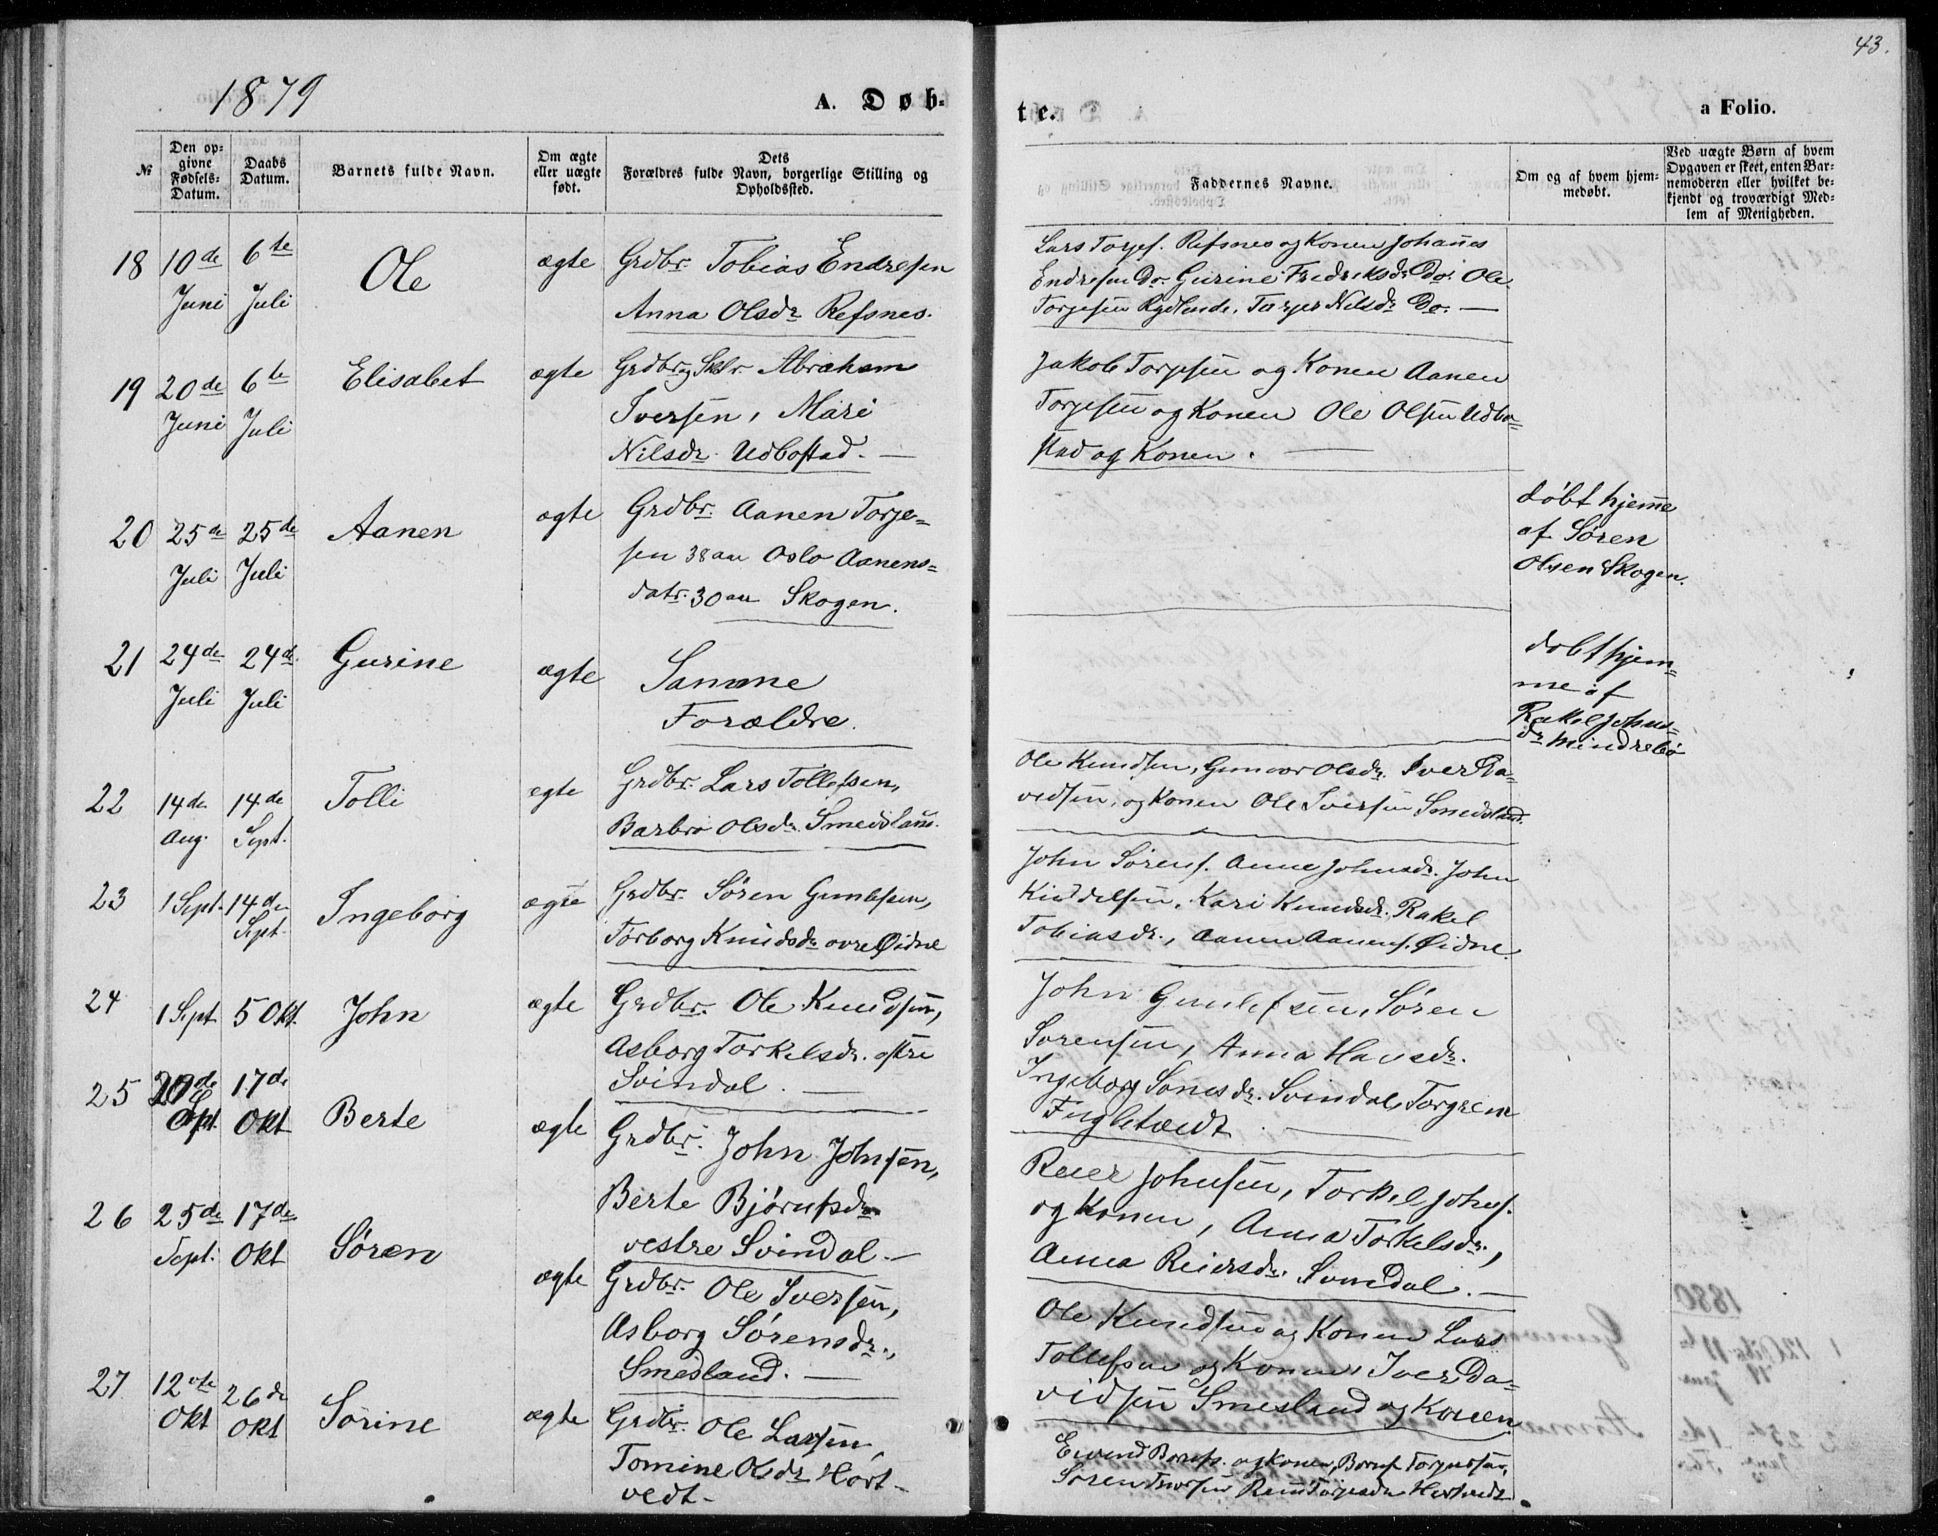 43.
1879
A. Døb-
te.
a Folio.
№
Den op-
givne
Fødsels-
Datum.
Daabs
Datum.
Barnets fulde Navn.
Om ægte
eller uægte
født.
Dets
Forældres fulde Navn, borgerlige Stilling og
Opholdssted.
Faddernes Navne.
Om og af hvem hjem-
medøbt.
Ved uægte Børn af hvem
Opgaven er skeet, enten Bar-
nemoderen eller hvilket be-
kjendt og troværdigt Med-
lem af Menigheden.
18 10de Juni 6te Juli
Ole
ægte
Grdbr. Tobias Endresen
Anna Olsdr Refsnes.
Lars Torjes. Refsnes og Konen Johanes
Endresen Do. Gurine Fredriksdr Do. Ole
Torjesen Rydlende, Nilsdr Do.
19 20de Juni 6te Juli
Elisabet
ægte
Grdbr og Sklr Abraham
Iversen, Mari
Nilsdr. Udbostad.
Jakob Torjesen og Konen Aanen
Torjesen og Konen Ole Olsen Udbo-
stad og Konen.
20 25de Juli 25de Juli
Aanen
ægte
Grdbr. Aanen Torje-
sen 38 aar Oslo Aanens-
datr. 30 aar Skogen.
døbt hjemme
af Søren
Olsen Skogen.
21 24de Juli 24de Juli
Gurine
ægte
Samme
Forældre.
døbt hjem-
me af
Rakel Johns-
dr Mindrebø
22 14de Aug. 14de Sept.
Tolli
egte
Grdbr. Lars Tollefsen,
Barbro Olsdr. Smedsland.
Ole Knudsen, Gunvor Olsdr. Iver Da-
vidsen, og Konen Ole Iversen Smedsland.
23 1 Sept. 14de Sept.
Ingeborg
ægte
Grdbr. Søren Gunlefsen,
Torborg Knudsdr øvre Øidne
John Sørens. Anne Johnsdr. John
Kari Knudsdr. Rakel
Tobiasdr., Aanen Aanens. Øidne.
24 1 Sept 5 Okt.
John
ægte
Grdbr. Ole Knudsen,
Asborg Torkelsdr. østre
Svindal.
John Gunlefsen, Søren
Sørensen, Anna Hansdr.
Ingeborg Svindal, Torgrim
Fugletvedt
25 Sept. 17de Okt
Berte
ægte
Grdbr. John Johnsen,
Berte Bjørnsdr
vestre Svindal.
Reier Johnsen, Torkel Johns.
og Konen, Anna Torkelsdr.,
Anna Reiersdr. Svindal.
26 25de Sept. 17de Okt
Søren
ægte
Grdbr. Ole Iversen,
Asborg Sørensdr.,
Smesland.
Ole Knudsen og Konen Lars
Tollefsen og Konen, Iver Da-
vidsen Smesland og Konen.
27 12te Okt 26de Okt
Sorine
ægte
Grdbr. Ole Larsen,
Tomine Olsdr Hort-
vedt.
Eivind og Konen,
Soren